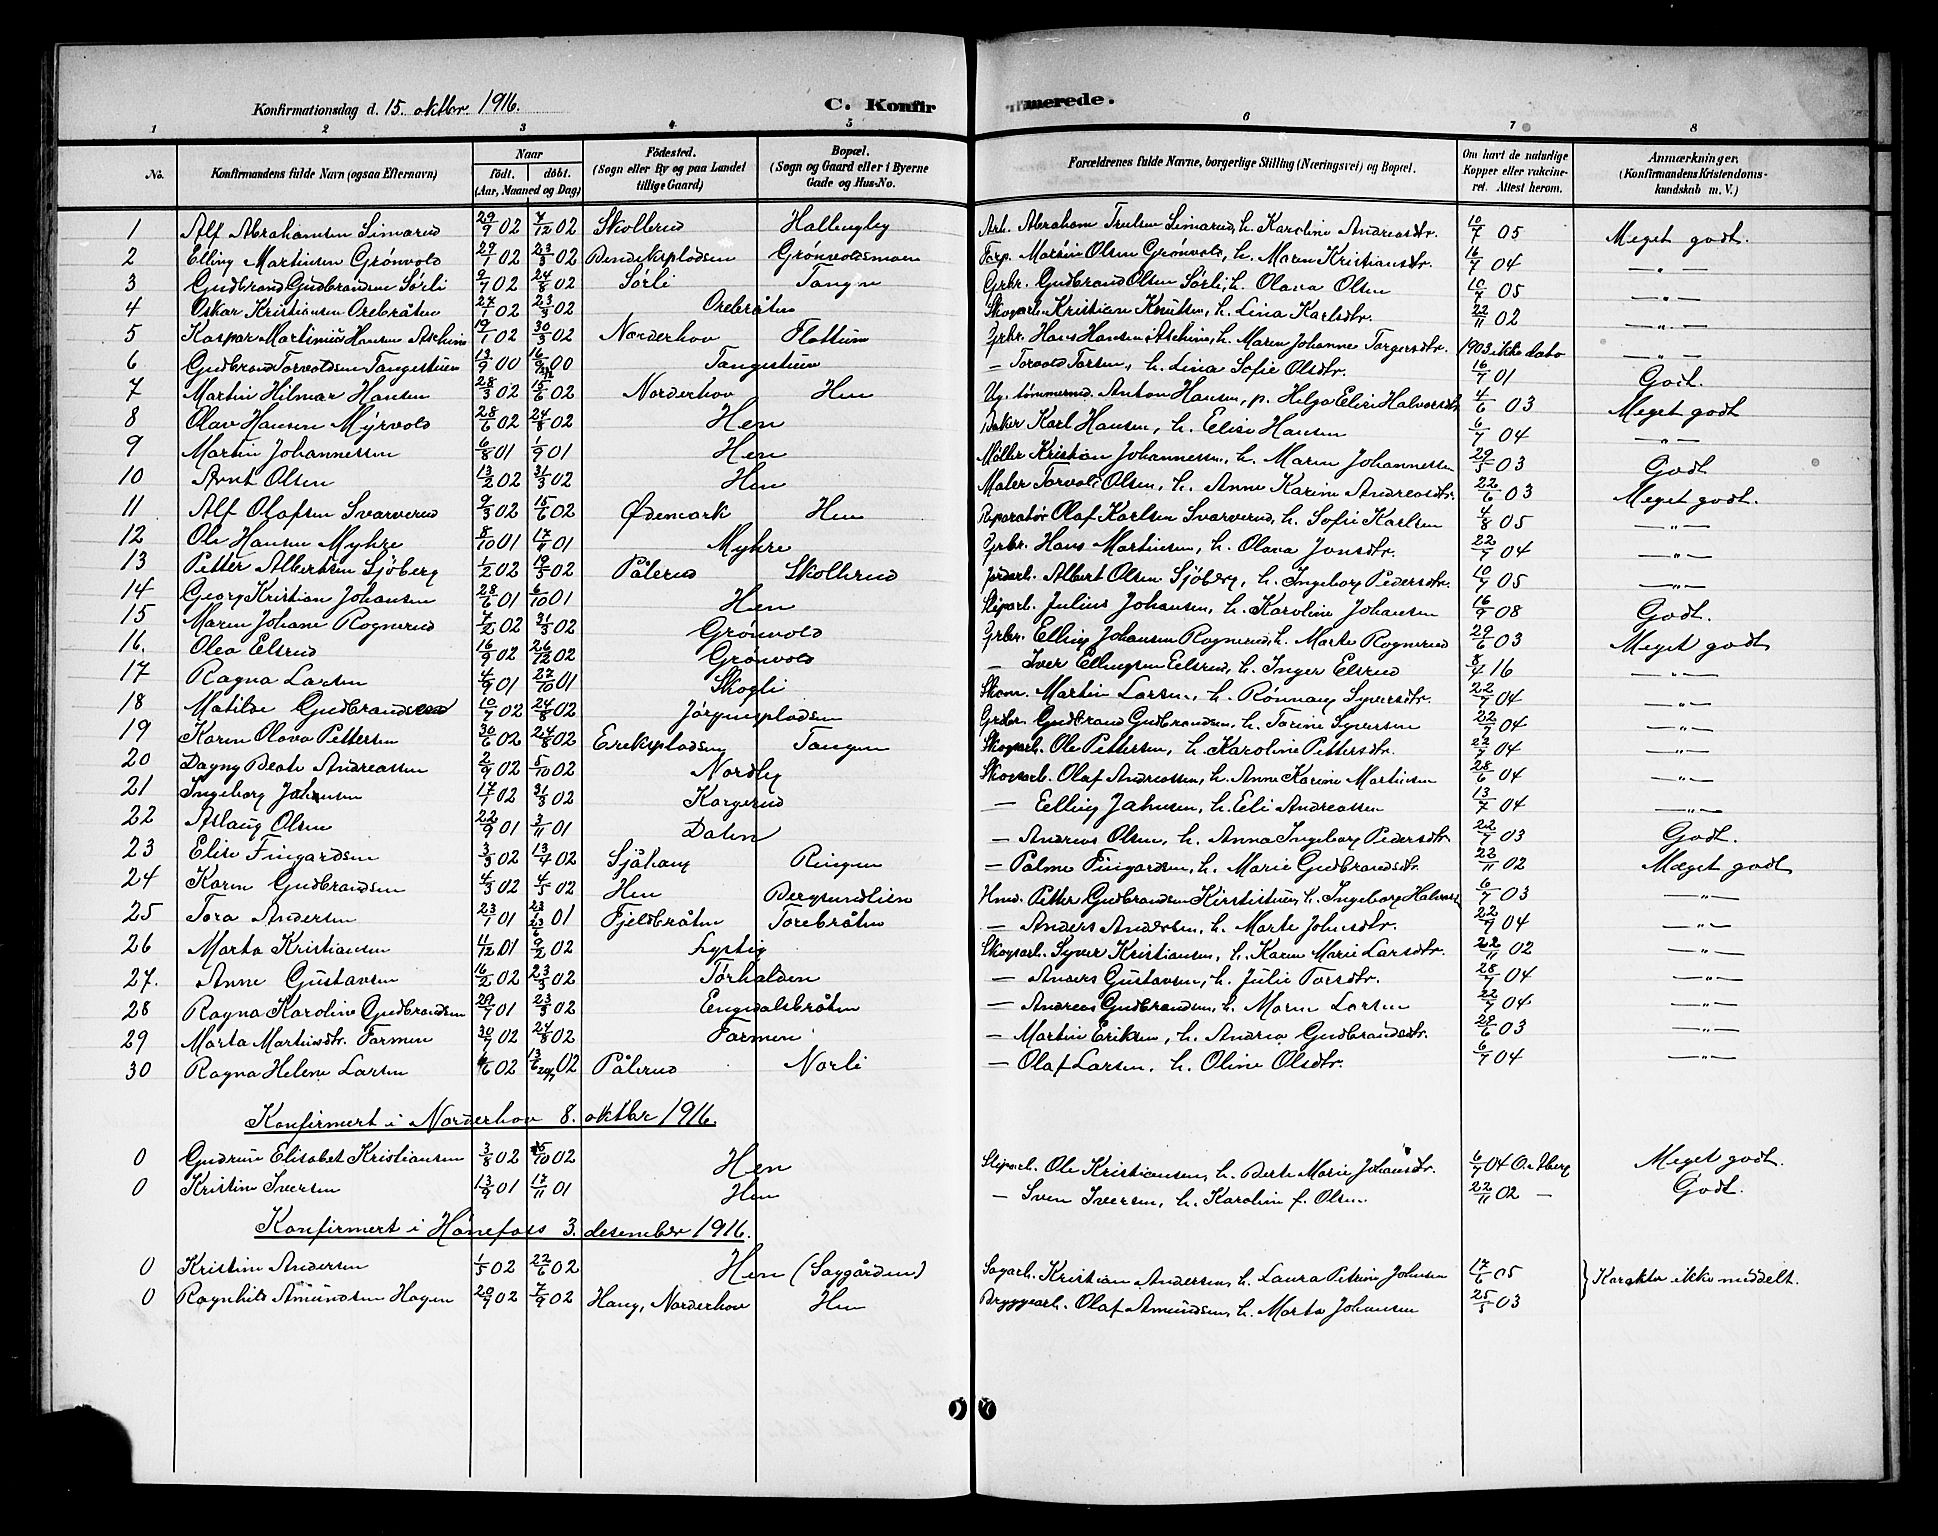 Konfirmationsdag d. 15. oktbr. 1916. C. Konfirmerede.
1 2 3 4 5 6 7 8
No. Konfirmandens fulde Navn (ogsaa Efternavn) Naar födt. döbt. (Aar, Maaned og Dag) Födested. (Sogn eller By og paa Landet tillige Gaard) Bopæl. (Sogn og Gaard eller i Byerne Gade og Hus-No. Forældrenes fulde Navne, borgerlige Stilling (Næringsvei) og Bopæl. Om havt de naturlige Kopper eller vakcineret. Attest herom. Anmærkninger. (Konfirmandens Kristendomskundskab m. V.)
1 Alf Abrahamsen Simarud 29/9 02 7/12 02 Skollerud Hallingby Arb. Abraham Trulsen Simarud, h. Karoline Andreasdtr. 10/7 05 Meget godt.
2 Elling Martinsen Grønvold 29/1 02 23/3 02 Bendikspladsen Grønvoldsmoen Forp. Martin Olsen Grønvold, h. Maren Kristiansdtr. 16/7 04 —"—
3 Gudbrand Gudbrandsen Sørli 9/7 02 24/8 02 Sørli Tangen Grbr. Gudbrand Olsen Sørli, h. Olava Olsen 10/7 05 —"—
4 Oskar Kristiansen Orebråten 27/1 02 23/3 02 Orebråten Skogarb. Kristian Knutsen, h. Lina Karlsdtr. 22/11 02 —"—
5 Kaspar Martinius Hansen Aschim 19/1 02 30/3 02 Norderhov Flattum Grbr. Hans Hansen Aschim, h. Maren Johanne Torgersdtr. 1903 ikke dato —"—
6 Gudbrand Torvoldsen Tangestuen 13/9 00 16/9 00 Tangestuen — Torvold Torsen, h. Lina Sofie Olsdtr. 16/7 01 Godt.
7 Martin Hilmar Hansen 28/3 02 15/6 02 Norderhov Hen Ug. tømmermd. Anton Hansen, p. Helga Elise Halvorsdtr. 4/6 03 Meget godt
8 Olav Hansen Myrvold 28/6 02 24/8 02 Hen Baker Karl Hansen, h. Elise Hansen 6/7 04 —"—
9 Martin Johannessen 6/8 01 1/9 01 Hen Møller Kristian Johannessen, h. Maren Johannessen 29/5 03 Godt
10 Arnt Olsen 13/2 02 31/3 02 Hen Maler Torvald Olsen, h. Anne Karine Andreasdtr. 22/6 03 Meget godt.
11 Alf Olafsen Svarverud 9/3 02 15/6 02 Ødemark Hen Reparatør Olaf Karlsen Svarverud, h. Sofie Karlsen 4/8 05 —"—
12 Ole Hansen Myhre 8/10 01 17/11 01 Myhre Grbr. Hans Martinsen, h. Olava Jonsdtr. 22/7 04 —"—
13 Petter Albertsen Sjöberg 1/2 02 17/5 02 Pålerud Skollerud Jordarb. Albert Olsen Sjöberg, h. Ingeborg Pedersdtr. 10/7 05 —"—
14 Georg Kristian Johansen 28/6 01 6/10 01 Hen Sliparb. Julius Johansen, h. Karoline Johansen 16/9 08 Godt.
15 Maren Johane Rognerud 7/2 02 31/3 02 Grønvold Grbr. Elling Johansen Rognerud, h. Marte Rognerud 29/6 03 Meget godt
16. Olea Elsrud 16/9 02 26/12 02 Grønvold — Iver Ellingsen Eelsrud, h. Inger Elsrud 8/4 16 —"—
17 Ragna Larsen 4/9 01 27/10 01 Skogli Skom. Martin Larsen, h. Rønnaug Syversdtr. 22/7 04 —"—
18 Matilde Gudbrandsen 10/7 02 24/8 02 Jörgenspladsen Grbr. Gudbrand Gudbrandsen, h. Torine Syversen 22/7 04 —"—
19 Karen Olava Pettersen 30/6 02 24/8 02 Erikspladsen Tangen Skogsarb. Ole Pettersen, h. Karoline Pettersdtr. 22/7 04 —"—
20 Dagny Beate Andreassen 2/9 02 5/10 02 Nordby Skogsarb. Olaf Andreassen, h. Anne Karine Martinsen 28/6 04 —"—
21 Ingeborg Jahnsen 17/1 02 31/3 02 Korgerud — Eelling Jahnsen, h. Eeli Andreassen 13/7 04 —"—
22 Aslaug Olsen 22/9 01 3/11 01 Dalen — Andreas Olsen, h. Anna Ingeborg Pedersdtr. 22/7 03 Godt.
23 Elise Fingardsen 3/3 02 13/4 02 Sjåhaug Ringen — Palme Fingardsen, h. Marie Gudbrandsdtr. 22/11 02 Meget godt
24 Karen Gudbrandsen 4/3 02 4/5 02 Hen Bergsundlien Hmd. Petter Gudbrandsen Kirstistuen, h. Ingeborg Halvorsd. 6/7 03 —"—
25 Tora Andersen 23/1 01 23/6 01 Fjeldbråten Torebråten — Anders Andersen, h. Marte Johnsdtr. 22/7 04 —"—
26 Marta Kristiansen 11/12 01 9/2 02 Lystig Skogsarb. Syver Kristiansen, h. Karen Marie Larsdtr. 22/11 02 —"—
27. Anne Gustavsen 16/2 02 23/3 02 Törhalden — Anders Gustavsen, h. Julie Torsdtr. 28/7 04 —"—
28 Ragna Karoline Gudbrandsen 29/7 01 23/3 02 Engedalsbråten — Andreas Gudbrandsen, h. Maren Larsen 22/7 04 —"—
29 Marta Martinsdtr. Formen 30/7 02 24/8 02 Formen — Martin Eriksen, h. Andrea Gudbrandsdtr. 29/6 03 —"—
30 Ragna Helene Larsen 4/6 02 13/6 02 Pålerud Norli — Olaf Larsen, h. Oline Olsdtr. 6/7 04 —"—
Konfirmert i Norderhov 8. oktbr 1916.
0 Gudrun Elisabet Kristiansen 3/8 02 5/10 02 Hen Sliparb. Ole Kristiansen, h. Berte Marie Johansdtr. 6/7 04 Meget godt.
0 Kristine Iversen 13/9 01 17/11 01 Hen — Sven Iversen, h. Karoline f. Olsen 22/11 02 — Godt.
Konfirmert i Hønefoss 3. desember 1916.
0 Kristine Andersen 1/5 02 22/6 02 Hen (Saggården) Sagarb. Kristian Andersen, h. Laura Petrine Johnsen 17/6 05 } Karakter ikke meddelt.
0 Ragnhild Amundsen Hagen 20/7 02 7/9 02 Haug, Norderhov Hen Bryggearb. Olaf Amundsen, h. Marta Johansen 25/5 03